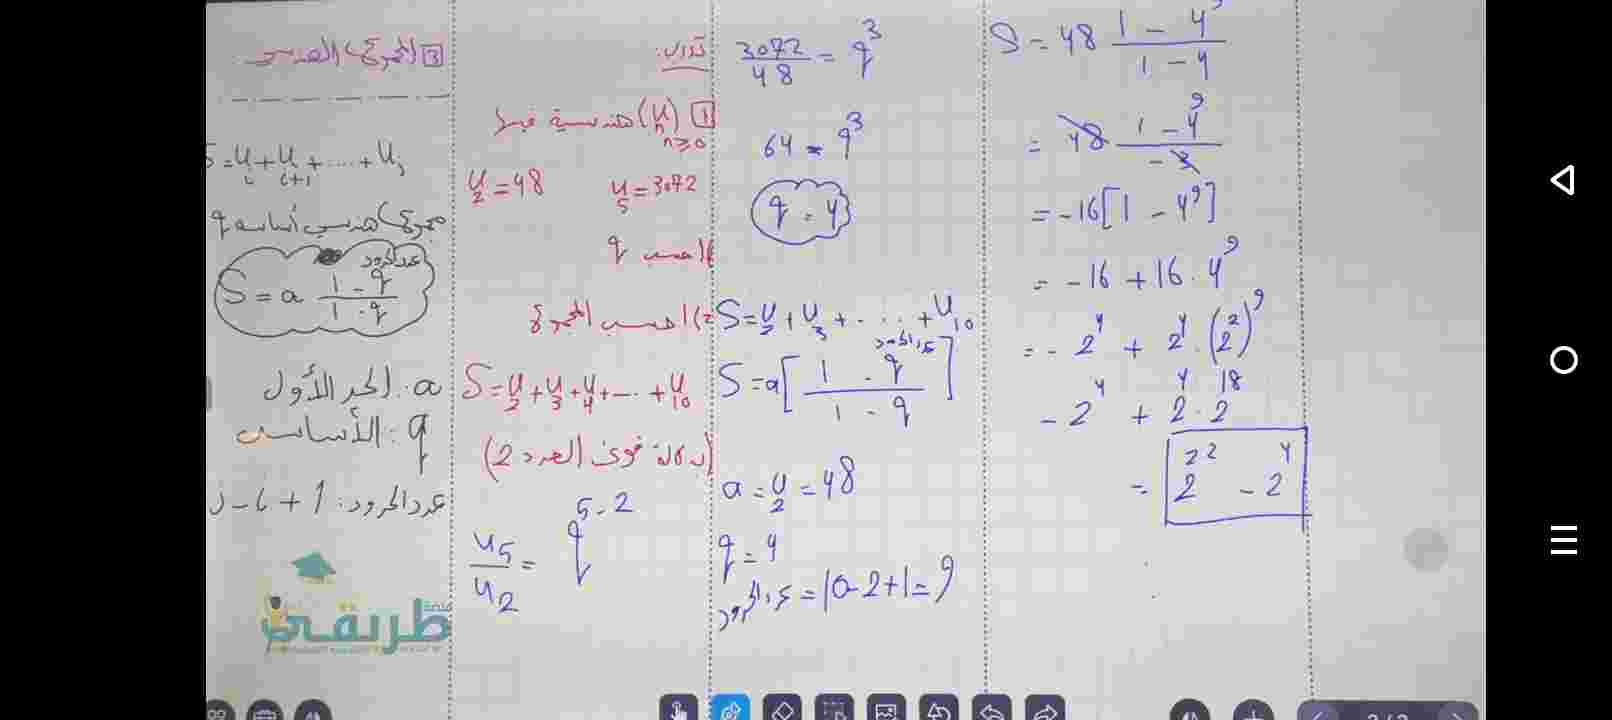 3 المجموع الهندسي
S = u_i + u_{i+1} + .... + u_j
مجموع هندسي أساسه q
S = a \frac{1 - q^{عدد الحدود}}{1 - q}
a : الحد الأول
q : الأساس
عدد الحدود : j - i + 1
منصة
طريقي
تدرب :
1 (u_n)_{n≥0} هندسية فيها
u_2 = 48 u_5 = 3072
1) احسب q
2) احسب المجموع
S = u_2 + u_3 + u_4 + .... + u_{10}
(بدلالة قوى العدد 2)
\frac{u_5}{u_2} = q^{5-2}
\frac{3072}{48} = q^3
64 = q^3
q = 4
S = u_2 + u_3 + .... + u_{10}
S = a [ \frac{1 - q^{عدد الحدود}}{1 - q} ]
a = u_2 = 48
q = 4
عدد الحدود = 10 - 2 + 1 = 9
S = 48 \frac{1 - 4^9}{1 - 4}
= 48 \frac{1 - 4^9}{-3}
= -16 [1 - 4^9]
= -16 + 16 . 4^9
= - 2^4 + 2^4 . (2^2)^9
- 2^4 + 2^4 . 2^{18}
= 2^{22} - 2^4